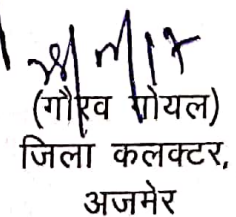 (गौरव गोयल)
जिला कलक्टर,
अजमेर